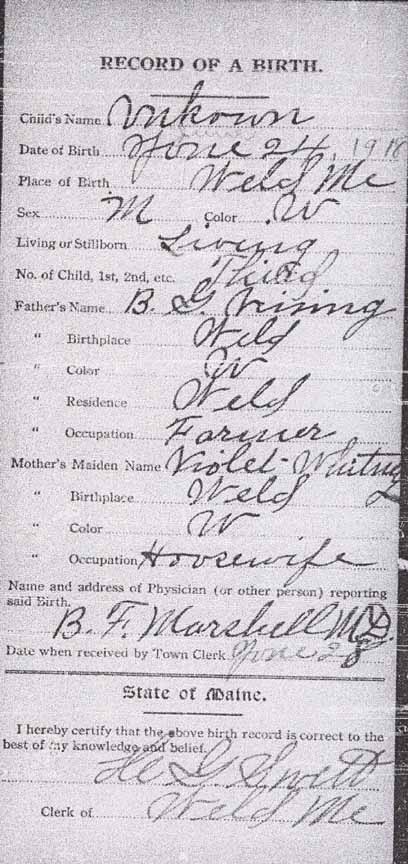 RECORD OF A BIRTH.
Child's Name Unkown
Date of Birth June 24, 1918
Place of Birth Weld Me
Sex M Color W
Living or Stillborn Living
No. of Child, 1st, 2nd, etc. Third
Father's Name B. G. Vining
" Birthplace Weld
" Color W
" Residence Weld
" Occupation Farmer
Mother's Maiden Name Violet Whitney
" Birthplace Weld
" Color W
" Occupation Housewife
Name and address of Physician (or other person) reporting
said Birth.
B. F. Marshell MD
Date when received by Town Clerk June 28
State of Maine.
I hereby certify that the above birth record is correct to the
best of my knowledge and belief.
G. Swett
Clerk of Weld Me